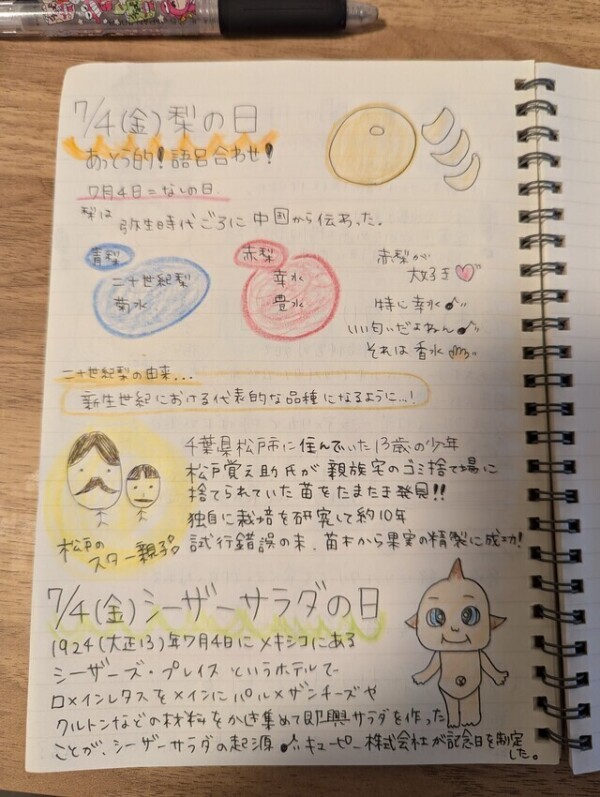 7/4(金)梨の日
あっとう的!語呂合わせ!
7月4日=なしの日
梨は 弥生時代ごろに中国から伝わった。
青梨
二十世紀梨
菊水
赤梨
幸水
豊水
赤梨が
大好き
特に幸水
いい匂いだよねん
それは香水
二十世紀梨の由来...
新生世紀における代表的な品種になるように...!
千葉県松戸市に住んでいた13歳の少年
松戸覚之助氏が親族宅のゴミ捨て場に
捨てられていた苗をたまたま発見!!
独自に栽培を研究して約10年
試行錯誤の末、苗木から果実の精製に成功!
松戸の
スター親子。
7/4(金)シーザーサラダの日
1924(大正13)年7月4日にメキシコにある
シーザーズ・プレイスというホテルで
ロメインレタスをメインにパルメザンチーズや
クルトンなどの材料をかき集めて即興サラダを作った
ことが、シーザーサラダの起源 キューピー株式会社が記念日を制定
した。